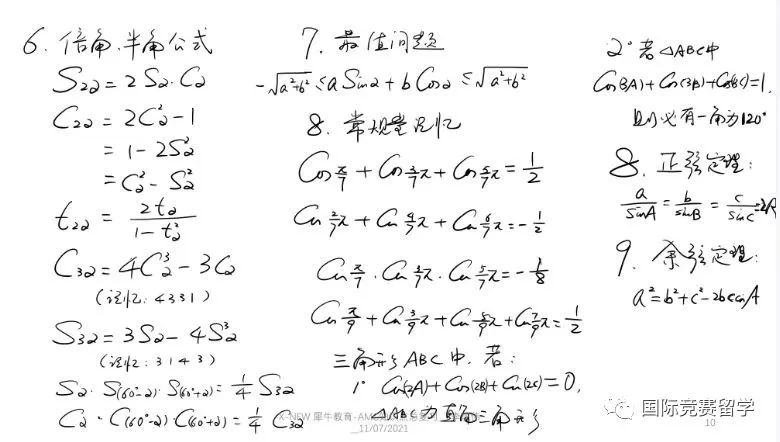 6. 倍角.半角公式
S2α = 2Sα·Cα
C2α = 2C²α - 1
= 1 - 2S²α
= C²α - S²α
t2α = 2tα / (1 - t²α)
C3α = 4C³α - 3Cα
(记忆: 4331)
S3α = 3Sα - 4S³α
(记忆: 3143)
Sα·S(60°-α)·S(60°+α) = 1/4 S3α
Cα·C(60°-α)·C(60°+α) = 1/4 C3α
7. 最值问题
-√(a²+b²) ≤ aSinα + bCosα ≤ √(a²+b²)
8. 常规量记忆
Cos π/7 + Cos 3/7π + Cos 5/7π = 1/2
Cos 2/7π + Cos 4/7π + Cos 6/7π = -1/2
Cos π/7 · Cos 3/7π · Cos 5/7π = -1/8
Cos π/9 + Cos 3/9π + Cos 5/9π + Cos 7/9π = 1/2
三角形ABC中,若:
1° Cos(2A) + Cos(2B) + Cos(2C) = 0,
△ABC为直角三角形
2° 若△ABC中
Cos(3A) + Cos(3B) + Cos(3C) = 1,
则必有一角为120°
8. 正弦定理:
a/sinA = b/sinB = c/sinC = 2R
9. 余弦定理:
a² = b² + c² - 2bccosA
X-NEW 犀牛教育-AM
11/07/2021
10
国际竞赛留学